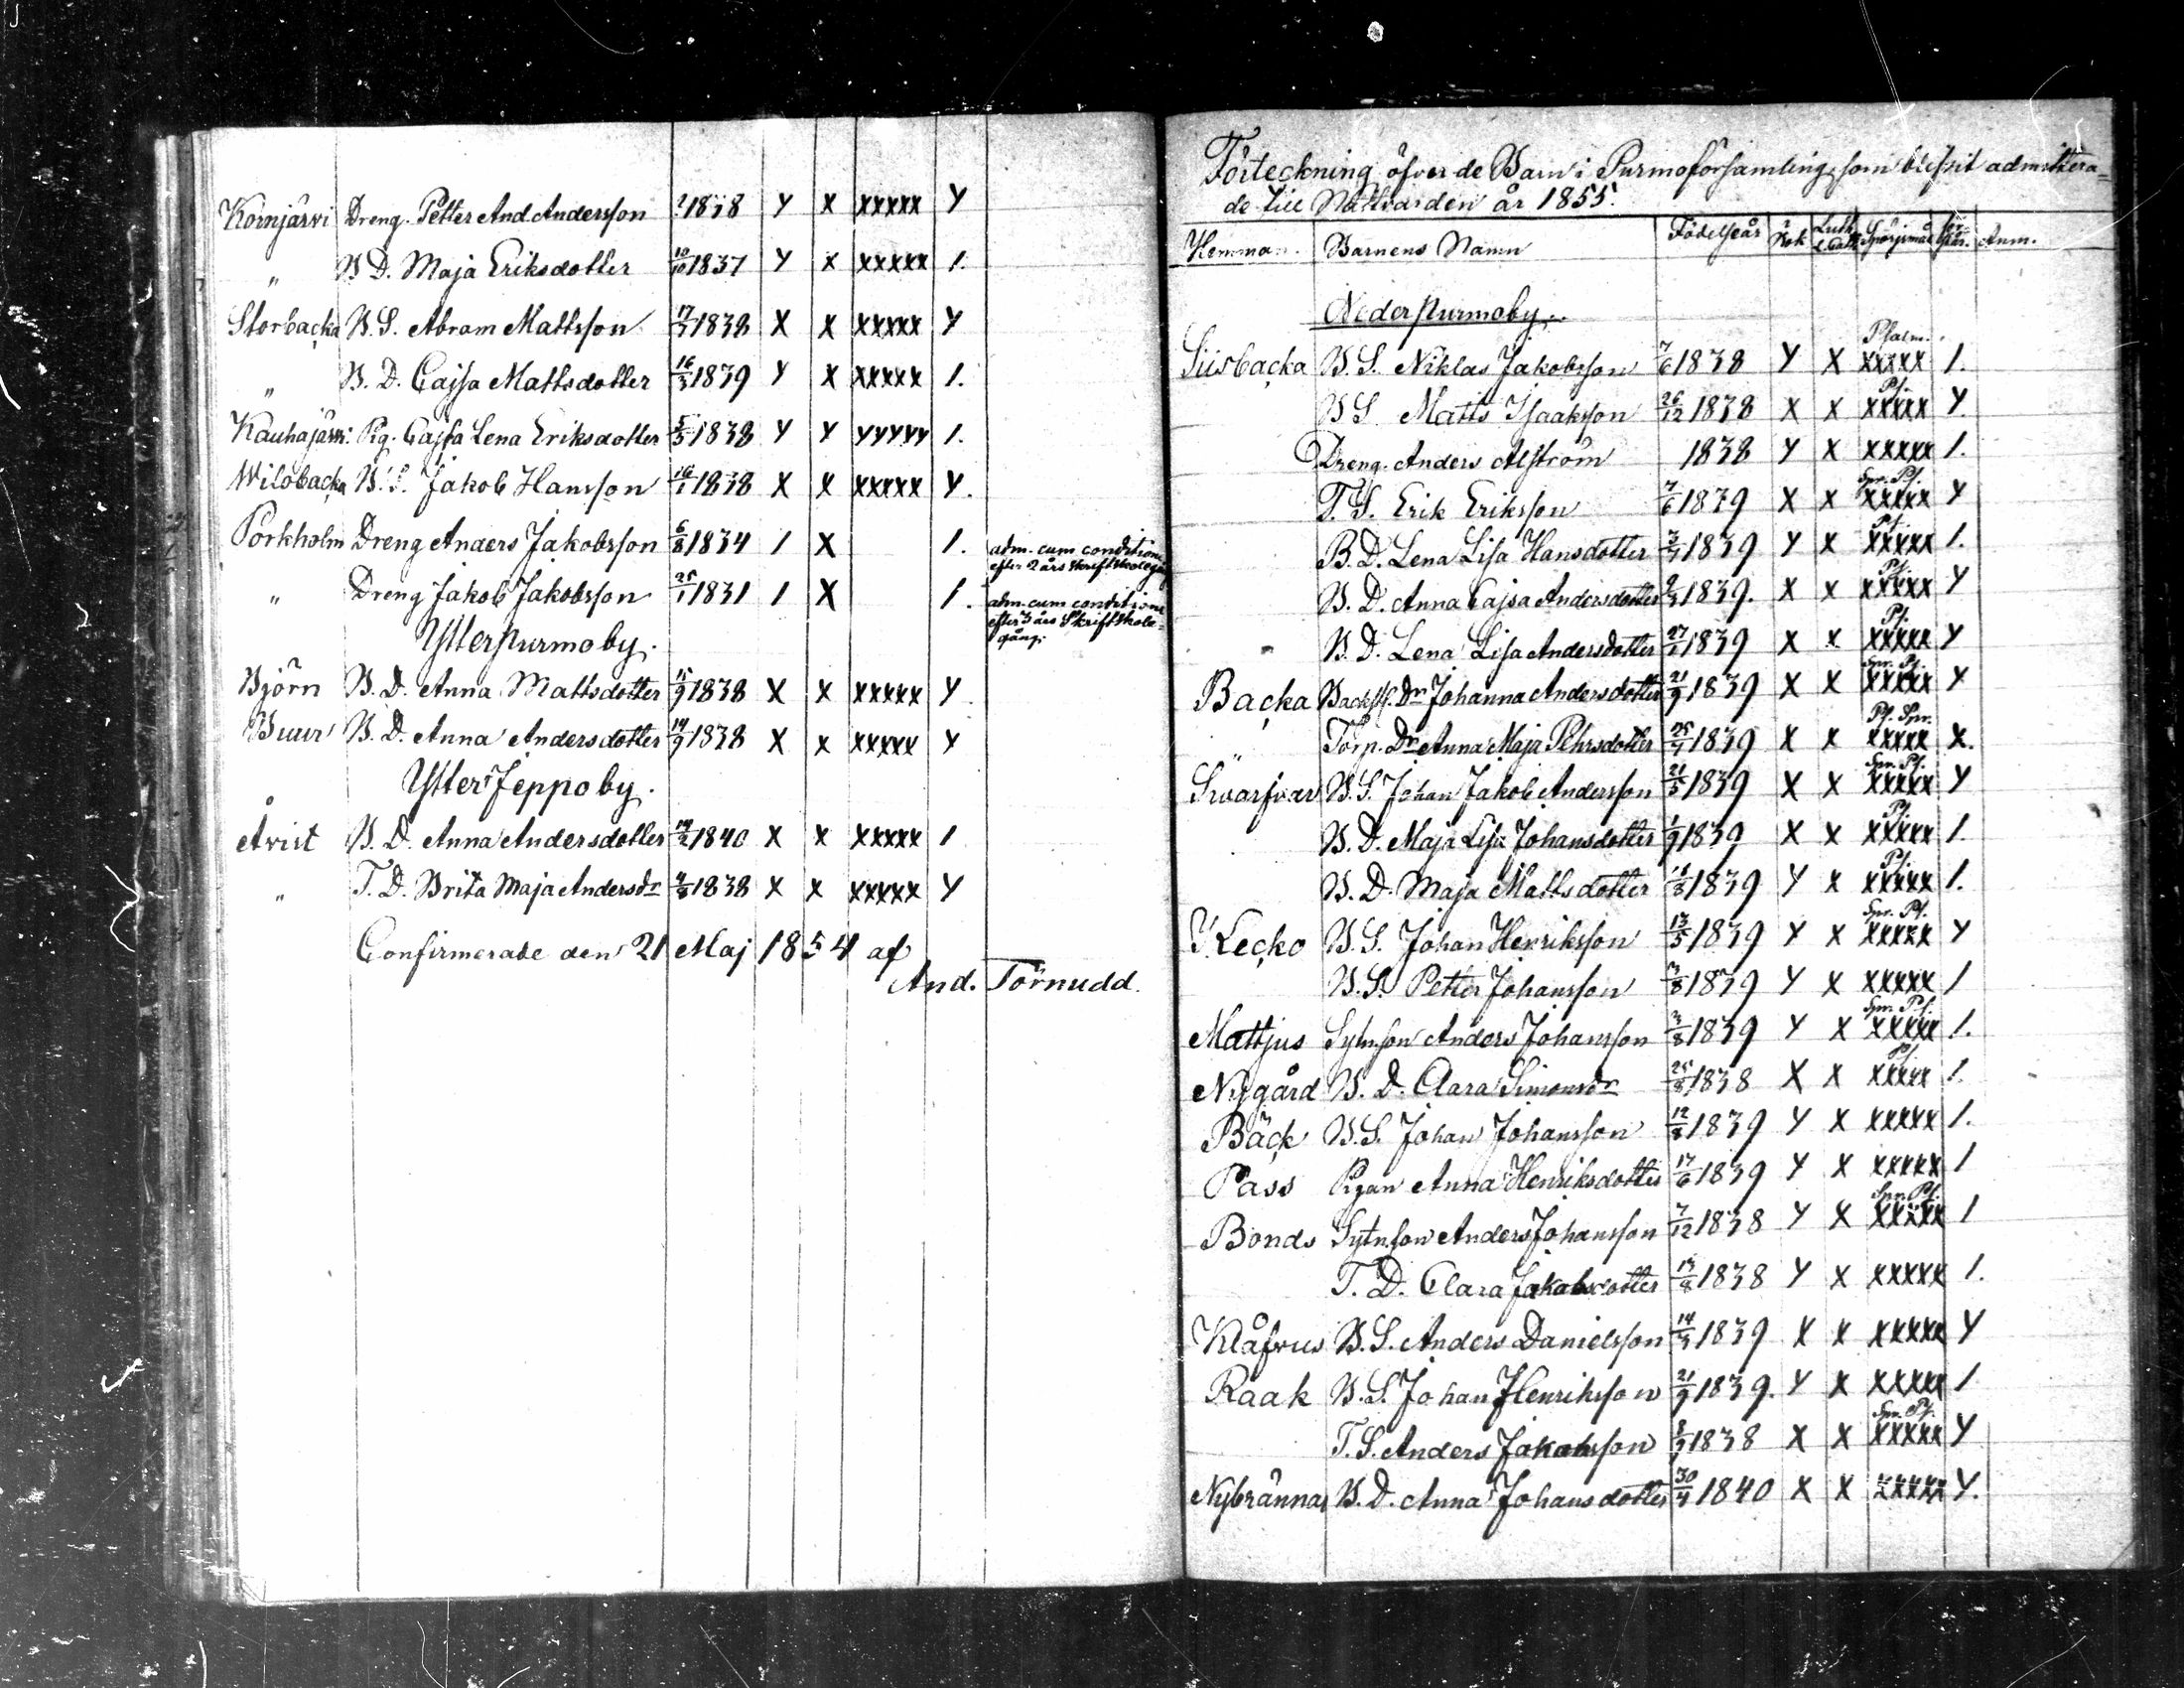 Kornjärvi Dreng. Petter And Andersson 1838 Y X XXXXX Y
" B D. Maja Eriksdotter 10/10 1837 Y X XXXXX 1.
Storbacka B. S. Abram Mattsson 17/7 1838 X X XXXXX Y
" B. D. Cajsa Mattsdotter 16/3 1839 Y X XXXXX 1.
Kauhajärvi: Pig. Cajsa Lena Eriksdotter 5/5 1838 Y Y YYYYY 1.
Wilobacka B. S. Jakob Hansson 16/1 1838 X X XXXXX Y.
Porkholm Dreng Anders Jakobsson 6/8 1834 1 X 1. adm. cum conditione
efter 2 års Skriftskolegång
" Dreng Jakob Jakobsson 25/1 1831 1 X 1. adm. cum conditione
efter 3 års Skriftskole=
gång.
Ytterpurmoby.
Björn B. D. Anna Mattsdotter 15/9 1838 X X XXXXX Y
Buur B. D. Anna Andersdotter 14/9 1838 X X XXXXX Y
Ytter Jeppoby.
Avist B. D. Anna Andersdotter 14/2 1840 X X XXXXX 1
" T. D. Brita Maja Andersdr 4/8 1838 X X XXXXX Y
Confirmerade den 21 Maj 1854 af
And. Törnudd.
Förteckning öfver de Barn i Purmo församling, som blifvit admittera=
de till Nattvarden år 1855.
Hemman. Barnens Namn Födelseår i Bok Luth. L. Cat. Spörjsmål För- står. Anm.
Nederpurmoby.
Psalm.
Siisbacka B. S. Niklas Jakobsson 7/6 1838 Y X XXXXX 1.
Ps.
B S. Matts Isaaksson 26/12 1838 X X XXXXX Y.
Dreng. Anders Alström 1838 Y X XXXXX 1.
Spr. Ps.
T. S. Erik Eriksson 7/6 1839 X X XXXXX Y
Ps.
B. D. Lena Lisa Hansdotter 3/4 1839 Y X XXXXX 1.
Ps.
B. D. Anna Cajsa Andersdotter 1839. X X XXXXX Y
Ps.
B. D. Lena Lisa Andersdotter 27/1 1839 X X XXXXX Y
Spr. Ps.
Backa Backst. Dr Johanna Andersdotter 21/9 1839 X X XXXXX Y
Ps. Spr.
" Torp. Dr Anna Maja Pehrsdotter 25/4 1839 X X XXXXX X.
Spr. Ps.
Svarfvar B. S. Johan Jakob Andersson 21/5 1839 X X XXXXX Y
Ps.
B. D. Maja Lisa Johansdotter 1/9 1839 X X XXXXX 1.
Ps.
B. D. Maja Mattsdotter 1839 Y X XXXXX 1.
Spr. Ps.
Y. Lecko B. S. Johan Henriksson 13/5 1839 Y X XXXXX Y
B. S. Petter Johansson 1839 Y X XXXXX 1
Spr. Ps.
Mattjus Sytn.son Anders Johansson 3/8 1839 Y X XXXXX 1.
Ps.
Nygård B. D. Clara Simonsdr 25/8 1838 X X XXXXX 1.
Bäck B. S. Johan Johansson 12/8 1839 Y X XXXXX 1.
Pass Pigan Anna Henriksdotter 17/6 1839 Y X XXXXX 1
Spr. Ps.
Bonds Sytn.son Anders Johansson 7/12 1838 Y X XXXXX 1
T. D. Clara Jakobsdotter 13/8 1838 Y X XXXXX 1.
Klåfvus B. S. Anders Danielsson 14/3 1839 X X XXXXX Y
Raak B. S. Johan Henriksson 21/9 1839. Y X XXXXX 1
Spr. Ps.
T. S. Anders Jakobsson 1838 X X XXXXX Y
Nybrännas B. D. Anna Johansdotter 30/4 1840 X X XXXXX Y.